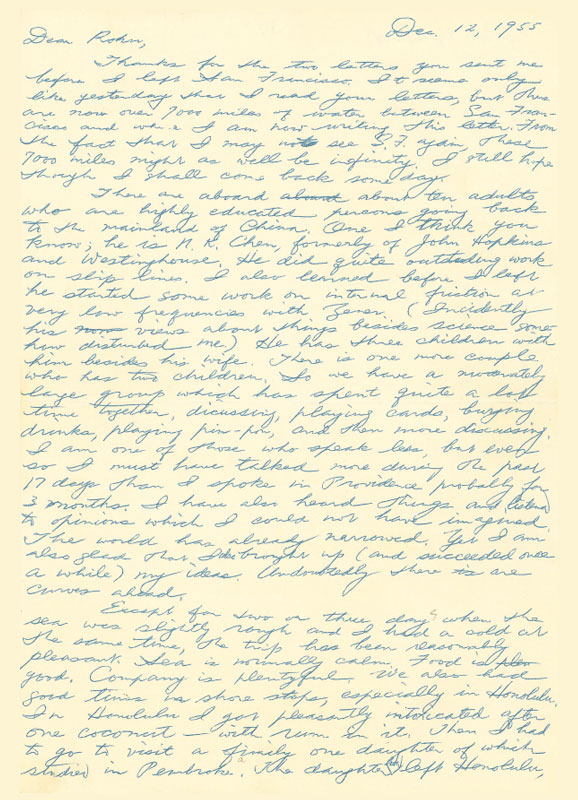 Dec. 12, 1955
Dear Rohn,
Thanks for the two letters you sent me
before I left San Francisco. It seems only
like yesterday that I read your letters, but there
are now over 7000 miles of water between San Fran-
cisco and where I am now writing this letter. From
the fact that I may not see S.F. again, these
7000 miles might as well be infinity. I still hope
though I shall come back some day.
There are aboard aboard about ten adults
who are highly educated persons going back
to the mainland of China. One I think you
know; he is N. K. Chen, formerly of John Hopkins
and Westinghouse. He did quite outstanding work
on slip lines. I also learned before I left
he started some work on internal friction at
very low frequencies with Zener. (Incidently
his views about things besides science some-
how disturbed me.) He has three children with
him besides his wife. There is one more couple
who has two children. So we have a moderately
large group which has spent quite a lot
time together, dicussing, playing cards, buying
drinks, playing pin-pon, and then more discussing.
I am one of those who speak less, but even
so I must have talked more during the past
17 days than I spoke in Providence probably for
3 months. I have also heard things and listened
to opinions which I could not have imagined.
The world has already narrowed. Yet I am
also glad that I brought up (and succeeded once
a while) my ideas. Undoubtedly there is are
curves ahead.
Except for two or three days when the
sea was slightly rough and I had a cold at
the same time, the trip has been reasonably
pleasant. Sea is normally calm. Food is
good. Company is plentyful. We also had
good times in shore stops, especially in Honolulu.
In Honolulu I got pleasantly intoxicated after
one coconut — with rum in it. Then I had
to go to visit a family one daughter of which
studied in Pembroke. The daughter left Honolulu,